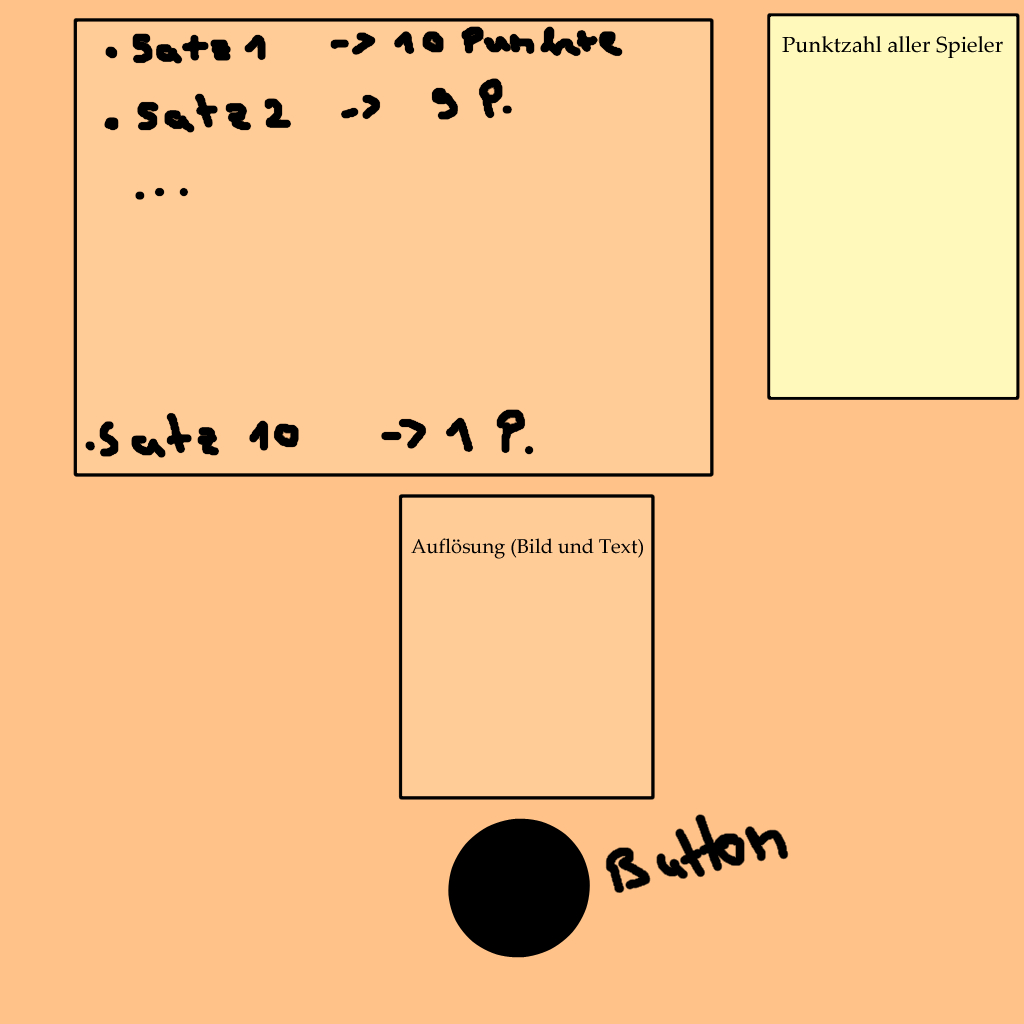 . Satz 1 -> 10 Punkte
. Satz 2 -> 9 P.
...
. Satz 10 -> 1 P.
Punktzahl aller Spieler
Auflösung (Bild und Text)
Button